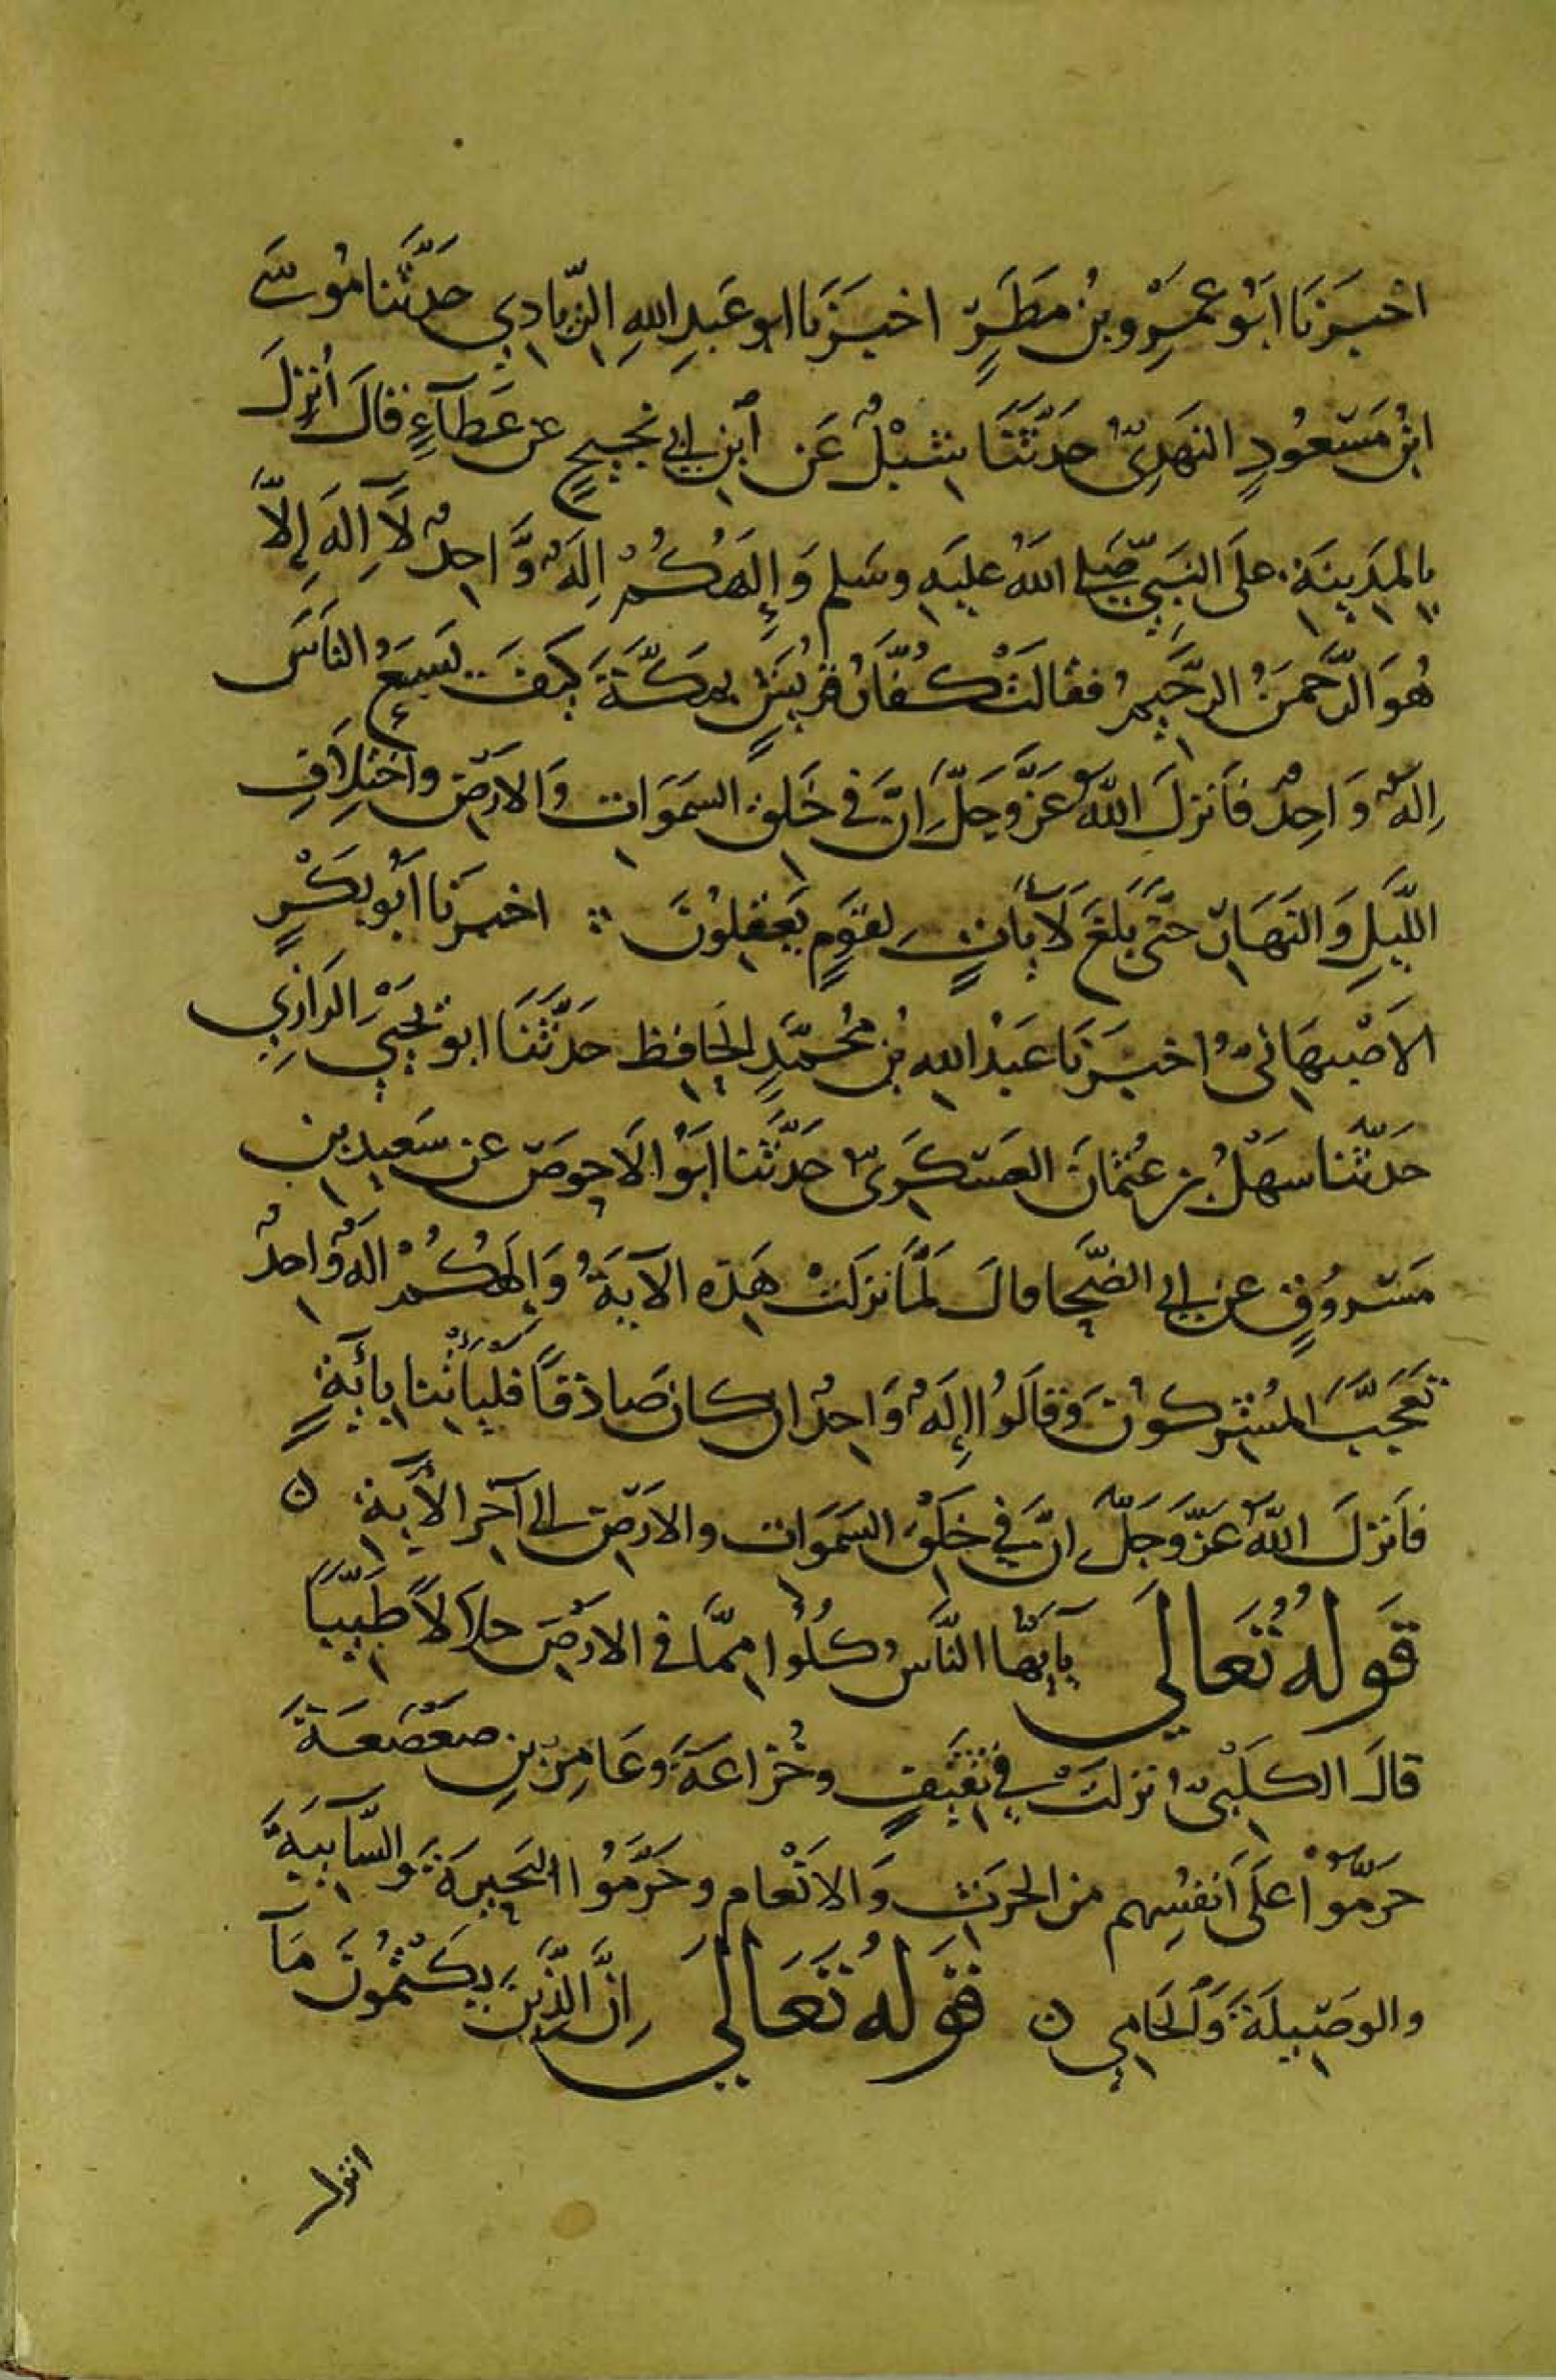 اخْبَرَنَا ابَوُ عَمْرِو بْنُ مَطَرٍ اخبَرَنَا ابو عَبدِ اللهِ الزّيادِي حَدَّثَنا مُوسَى
ابْنُ مَسْعُودٍ النَهدِىّ حَدَّثَنَا شِبْلٌ عَن ابْنِ ابي نجيحٍ عن عَطآءٍ قالَ أُنزِلَ
بِالمَدِينَةِ علَى النَبيّ صَلى اللهُ عليَهِ وسَلم وَإِلَهُكُمْ اِلَهٌ وَّاحِدٌ لَآ اِلَهَ اِلَّا
هُوَ الرَّحمنُ الرحَّيمُ فقالَتْ كُفّارُ قريشٍ بِمَكَّةَ كَيفَ يَسَعُ الناسَ
اِلهٌ وَاحِدٌ فَانزلَ اللهُ عَزَّوَجَلَّ اِنَّ في خَلقِ السَمَوَاتِ وَالارَضِ واخْتِلَافِ
اللَّيلِ وَالنهَارِ حتَّى بَلغَ لَآيَاتٍ لقوَمٍ يَعقِلُونَ اخبرَنا أبُو بَكْرٍ
الاَصْبِهَانىُّ اخبَرَنَا عَبْدُ اللهِ بْنُ مُحمَّدٍ الحَافِظ حَدَّثَنَا ابو يَحيَى الرَازِي
حَدّثَنا سَهْلُ بن عُثمَانَ العَسْكَرِىّ حَدَّثَنا ابَوُ الَاحوَصِ عن سَعِيدِ بنِ
مَسْروُقٍ عن ابي الضّحَا قالَ لَمَّا نزلَتْ هَذِه الآيَةُ وَإِلهُكُمْ اِلهٌ وَّاحِدٌ
تعَجَّبَ المُشْرِكُونَ وَقالَوُا اِلَهٌ وَاحِدٌ ان كان صَادِقًا فَليَأْتِنا بِآيَةٍ
فاَنزلَ اللهُ عَزَّوَجَلَّ اِنَّ فِي خَلَقِ السَمَوَاتِ والارَضِ الى آخِرِ الآيَةِ ٥
قَولهُ تَعَالَي يآيُّهَا النَّاسُ كُلُوا مِمَّا في الارْضِ حلاَلاً طَيِّبًا
قالَ الكلَبْىُّ نزلَتْ فِي ثَقيفٍ وخُزاعَةَ وعَامِرِ بْنِ صَعْصَعَةَ
حَرَّمُوْا علَى أَنفسُِهِم من الحرَثِ وَالاَنْعامِ وحَرَّمُوا البَحيرةَ والسَّآيِبَةَ
والوَصِيلَةَ وَالحَامِي ٥ قَولهُ تَعَالَي اِنَّ الَّذِينَ يَكْتُمُونَ مَآ
انزل